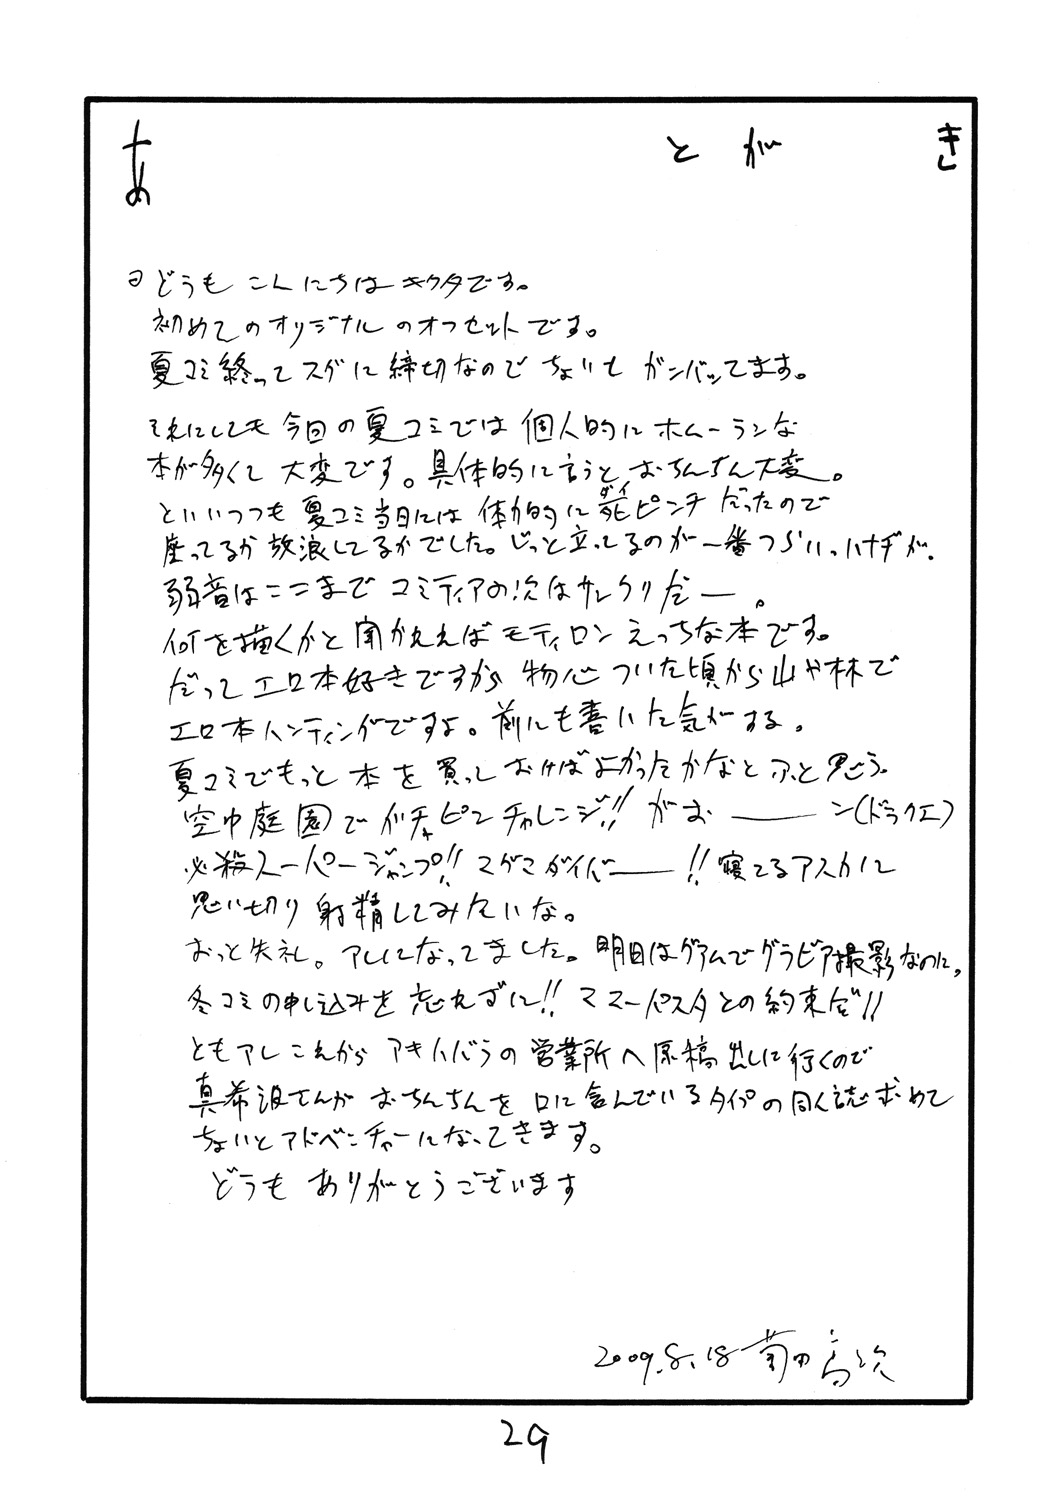 あとがき
どうもこんにちはキクタです。
初めてのオリジナルのオフセットです。
夏コミ終ってスグに締切なのでちょいとガンバッてます。
それにしても今回の夏コミでは個人的にホームランな
本が多くて大変です。具体的に言うとおちんちん大変。
といいつつも夏コミ当日には体力的に死ピンチだったので
ダイ
座ってるか放浪してるかでした。じっと立ってるのが一番つらい。ハナヂが。
弱音はここまでコミティアの次はサンクリだー。
何を描くかと聞かれればモティロンえっちな本です。
だってエロ本好きですから物心ついた頃から山や林で
エロ本ハンティングですよ。前にも書いた気がする。
夏コミでもっと本を買っておけばよかったかなとふと思う。
空中庭園でガチャピンチャレンジ!!がお――――ン(ドラクエ)
必殺スーパージャンプ!!マグマダイバー――!!寝てるアスカに
思い切り射精してみたいな。
おっと失礼。アレになってました。明日はグアムでグラビア撮影なのに。
冬コミの申し込みを忘れずに!!ママーパスタとの約束だ!!
ともアレこれからアキハバラの営業所へ原稿出しに行くので
真希波さんがおちんちんを口に含んでいるタイプの同人誌求めて
ちょいとアドベンチャーになってきます。
どうもありがとうございます
2009.8.18 菊田高次
29